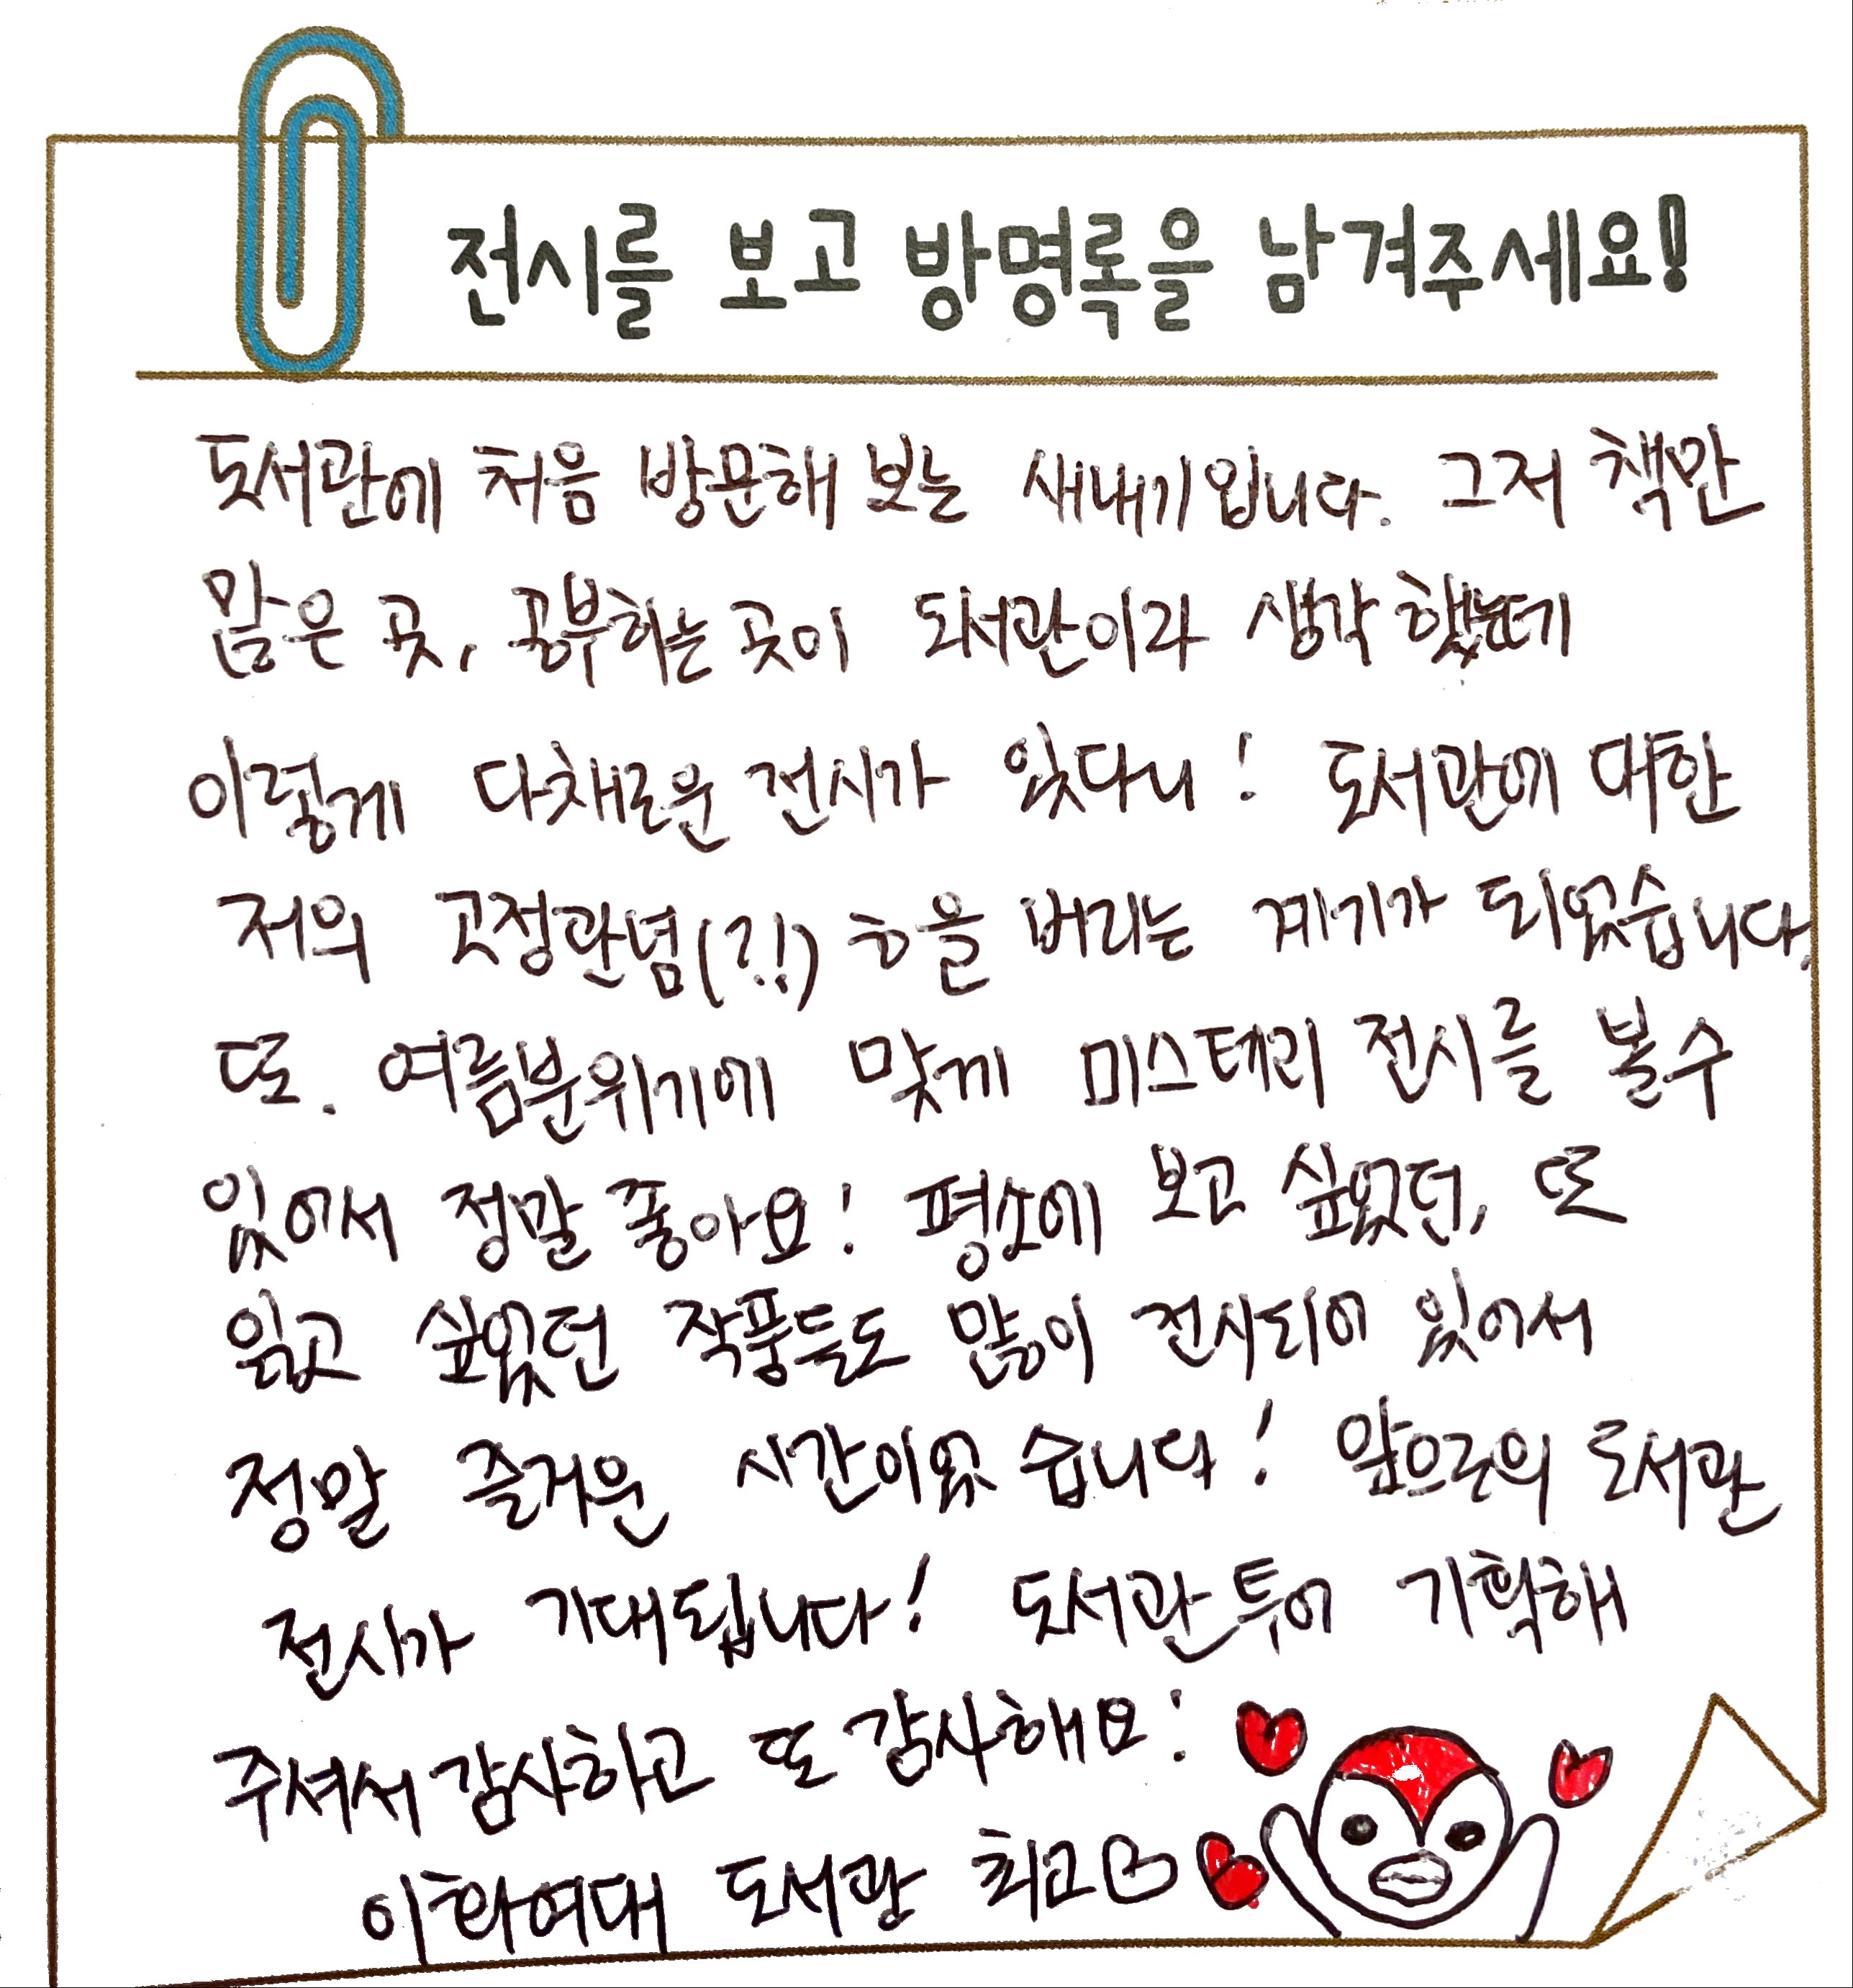 전시를 보고 방명록을 남겨주세요!
도서관에 처음 방문해 보는 새내기입니다. 그저 책만
많은 곳, 공부하는 곳이 도서관이라 생각했는데
이렇게 다채로운 전시가 있다니! 도서관에 대한
저의 고정관념(?!)ㅎ을 버리는 계기가 되었습니다.
또. 여름분위기에 맞게 미스테리 전시를 볼수
있어서 정말 좋아요! 평소에 보고 싶었던, 또
읽고 싶었던 작품들도 많이 전시되어 있어서
정말 즐거운 시간이었습니다! 앞으로의 도서관
전시가 기대됩니다! 도서관 투어 기획해
주셔서 감사하고 또 감사해요!
이화여대 도서관 최고♡